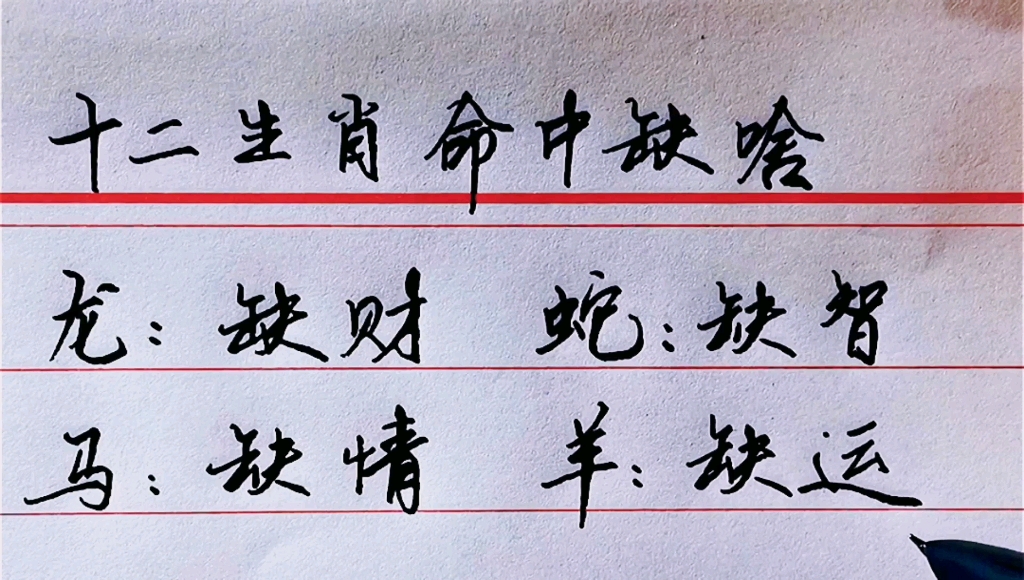 十二生肖命中缺啥
龙：缺财 蛇：缺智
马：缺情 羊：缺运